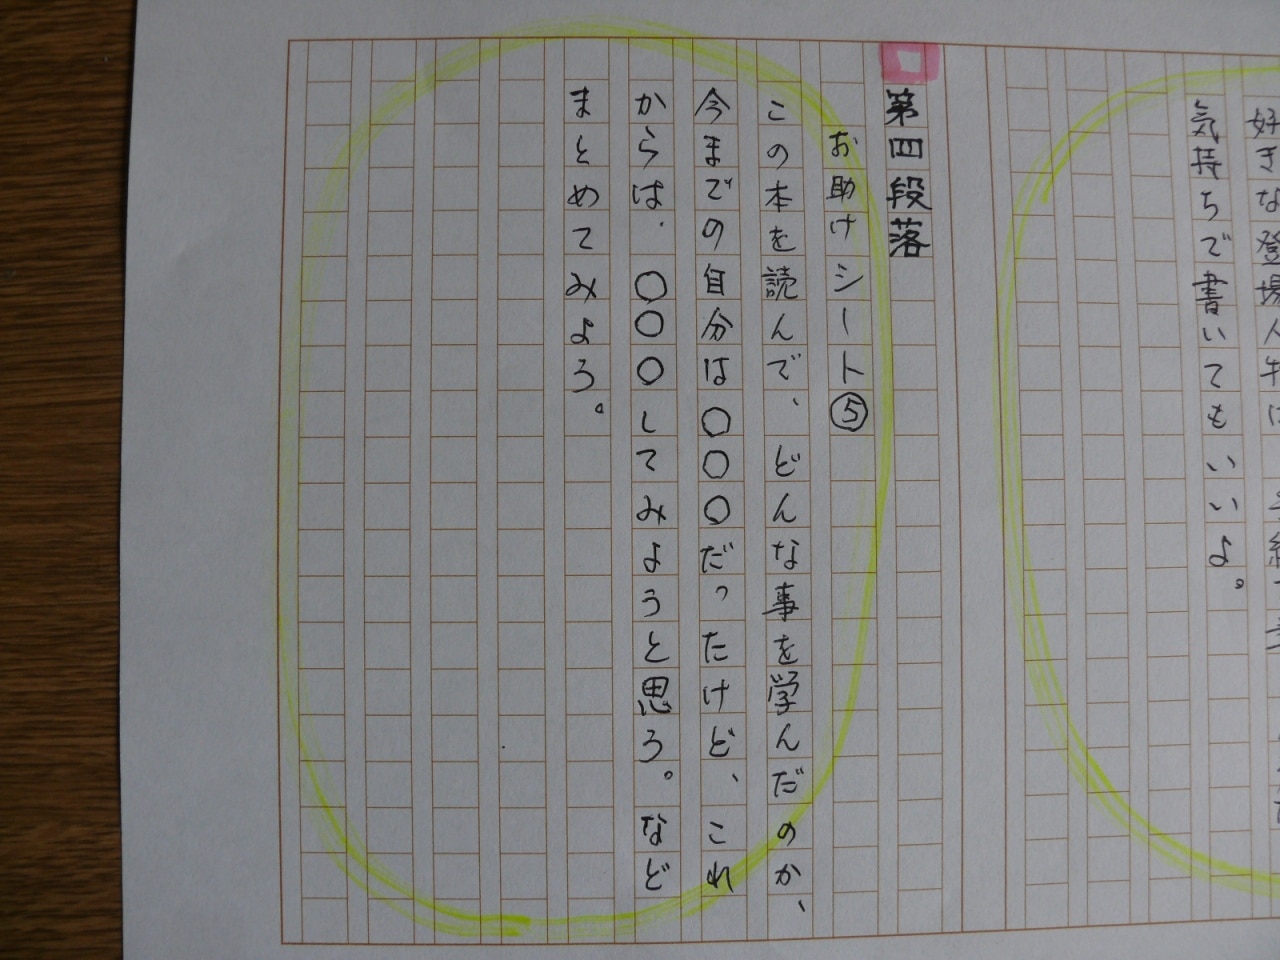 好きな登場人物に
気持ちで書いてもいいよ。
第四段落
お助けシート⑤
この本を読んで、どんな事を学んだのか、
今までの自分は〇〇〇だったけど、これ
からは、〇〇〇してみようと思う。など
まとめてみよう。